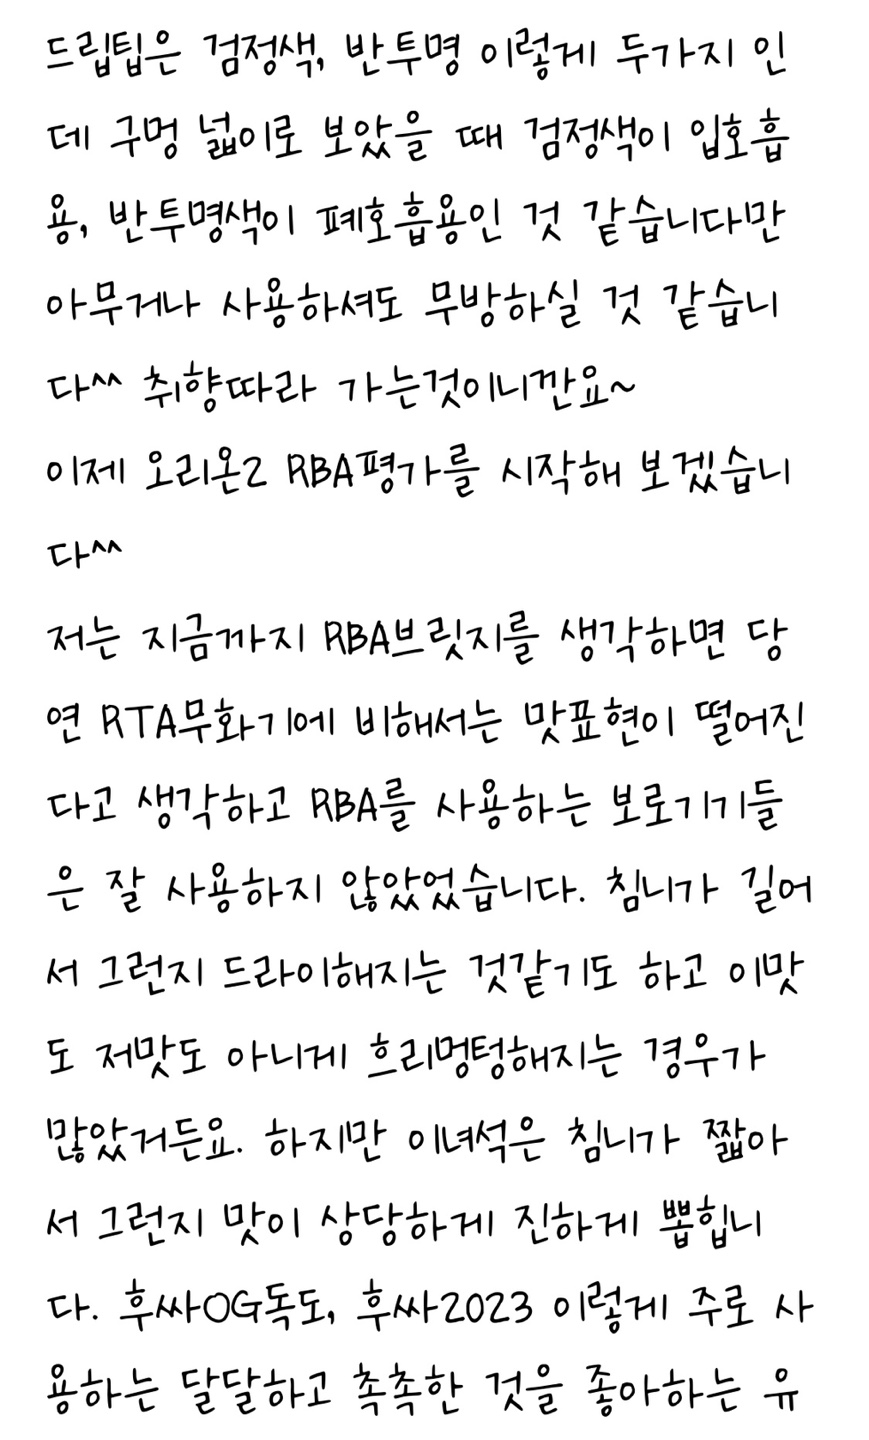 드립팁은 검정색, 반투명 이렇게 두가지 인
데 구멍 넓이로 보았을 때 검정색이 입호흡
용, 반투명색이 폐호흡용인 것 같습니다만
아무거나 사용하셔도 무방하실 것 같습니
다^^ 취향따라 가는것이니깐요~
이제 오리온2 RBA평가를 시작해 보겠습니
다^^
저는 지금까지 RBA브릿지를 생각하면 당
연 RTA무화기에 비해서는 맛표현이 떨어진
다고 생각하고 RBA를 사용하는 보로기기들
은 잘 사용하지 않았었습니다. 침니가 길어
서 그런지 드라이해지는 것같기도 하고 이맛
도 저맛도 아니게 흐리멍텅해지는 경우가
많았거든요. 하지만 이녀석은 침니가 짧아
서 그런지 맛이 상당하게 진하게 뽑힙니
다. 후싸OG독도, 후싸2023 이렇게 주로 사
용하는 달달하고 촉촉한 것을 좋아하는 유